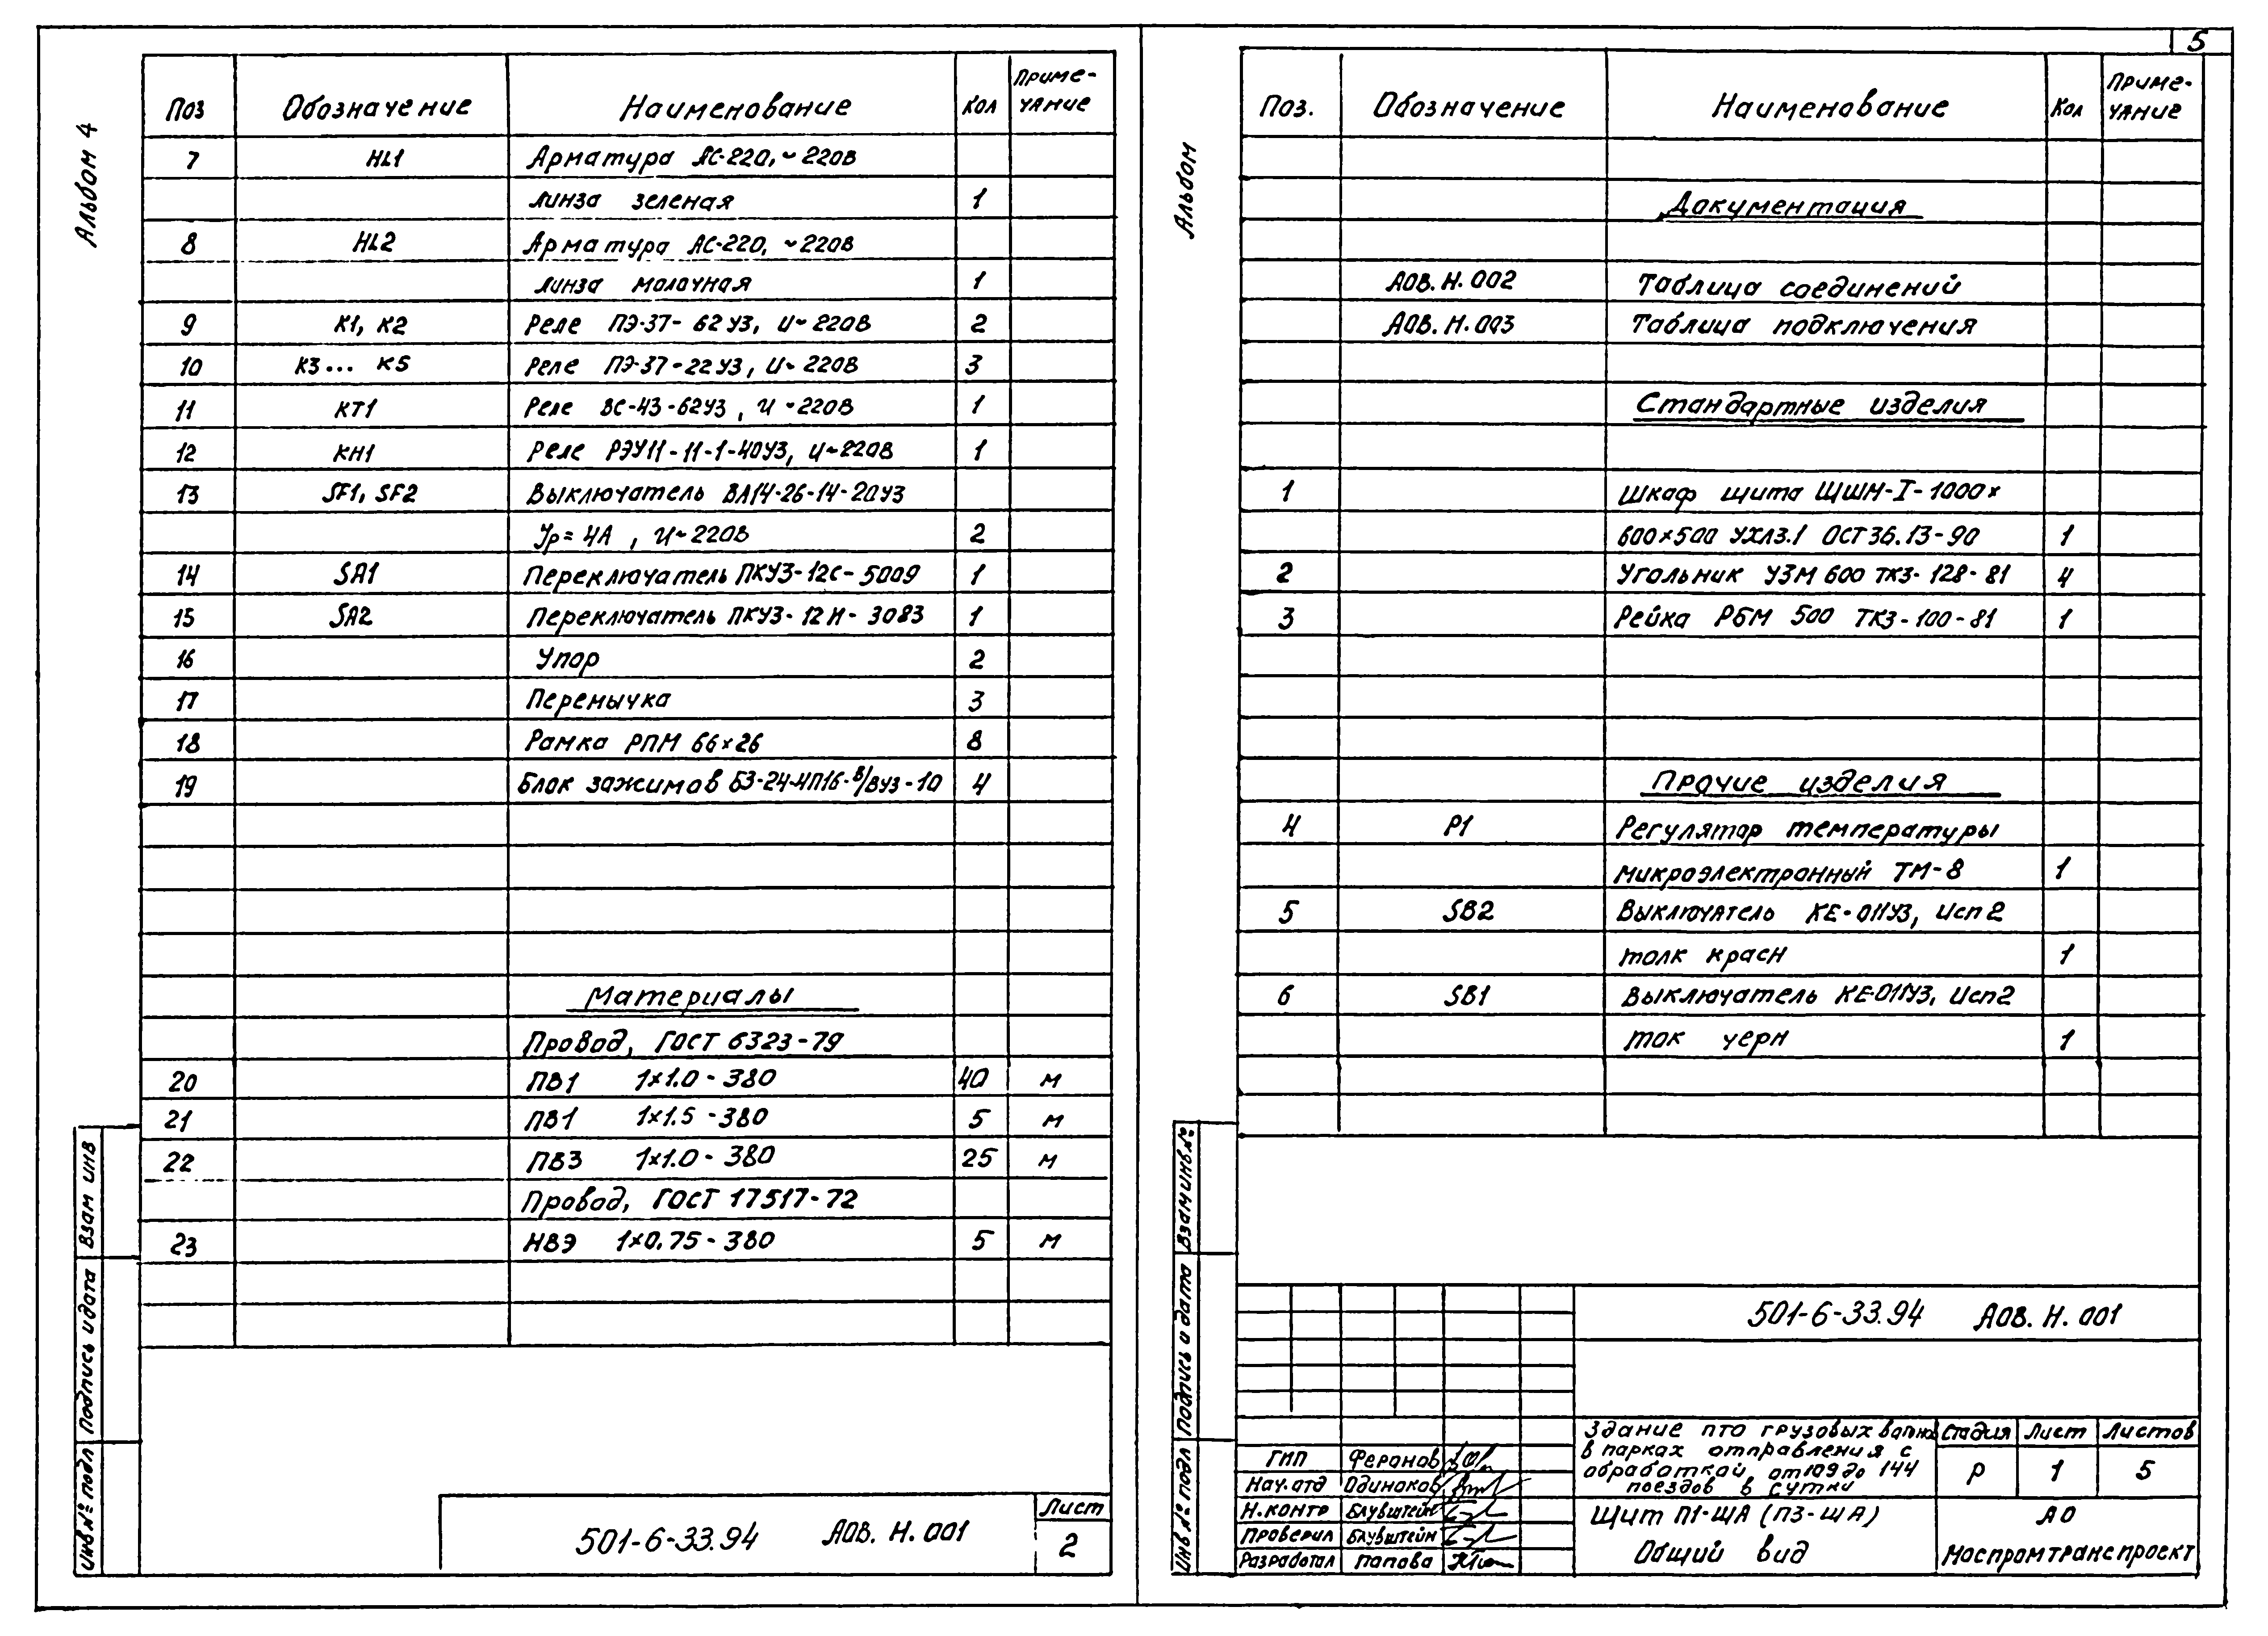 5
Альбом 4
Поз Обозначение Наименование Кол Приме-
чание
7 HL1 Арматура АС-220, ~220В
линза зеленая 1
8 HL2 Арматура АС-220, ~220В
линза молочная 1
9 К1, К2 Реле ПЭ-37-62У3, U~220В 2
10 К3... К5 Реле ПЭ-37-22У3, U~220В 3
11 КТ1 Реле ВС-43-62У3, U~220В 1
12 КН1 Реле РЭУ11-11-1-40У3, U~220В 1
13 SF1, SF2 Выключатель ВА14-26-14-20У3
Jр=4А, U~220В 2
14 SA1 Переключатель ПКУ3-12С-5009 1
15 SA2 Переключатель ПКУ3-12И-3083 1
16 Упор 2
17 Перемычка 3
18 Рамка РПМ 66×26 8
19 Блок зажимов Б3-24-4П16-В/ВУ3-10 4
Материалы
Провод, ГОСТ 6323-79
20 ПВ1 1×1.0-380 40 м
21 ПВ1 1×1.5-380 5 м
22 ПВ3 1×1.0-380 25 м
Провод, ГОСТ 17517-72
23 НВЭ 1×0.75-380 5 м
Взам инв
Подпись и дата
Инв № подл
501-6-33.94 АОВ. Н. 001
Лист
2
Альбом
Поз. Обозначение Наименование Кол Приме-
чание
Документация
АОВ. Н. 002 Таблица соединений
АОВ. Н. 003 Таблица подключения
Стандартные изделия
1 Шкаф щита ЩШМ-I-1000×
600×500 УХЛ3.1 ОСТ36.13-90 1
2 Угольник УЗМ 600 ТК3-128-81 4
3 Рейка РБМ 500 ТК3-100-81 1
Прочие изделия
4 Р1 Регулятор температуры
микроэлектронный ТМ-8 1
5 SB2 Выключатель КЕ-011У3, Исп 2
толк красн 1
6 SB1 Выключатель КЕ-011У3, Исп2
ток черн 1
Взам инв №
Подпись и дата
Инв № подл
501-6-33.94 АОВ. Н. 001
Здание пто грузовых вагонов
в парках отправления с
обработкой от 109 до 144
поездов в сутки
Стадия Лист Листов
Р 1 5
ГИП Феранов
Нач. отд Одиноков
Н. контр Блувштейн
Проверил Блувштейн
Разработал Папова
Щит П1-ЩА (П3-ЩА)
Общий вид
АО
Моспромтранспроект